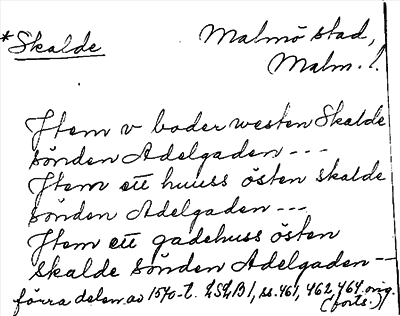 *Skalde
Malmö stad,
Malm. l.
Item v boder westen Skalde
sönden Adelgaden ---
Item ett huuss östen skalde
sönden Adelgaden ---
Item ett gadehuss östen
skalde sönden Adelgaden --
förra delen av 1570-t. LSLB 1, ss. 461, 462, 464 orig.
(forts.)